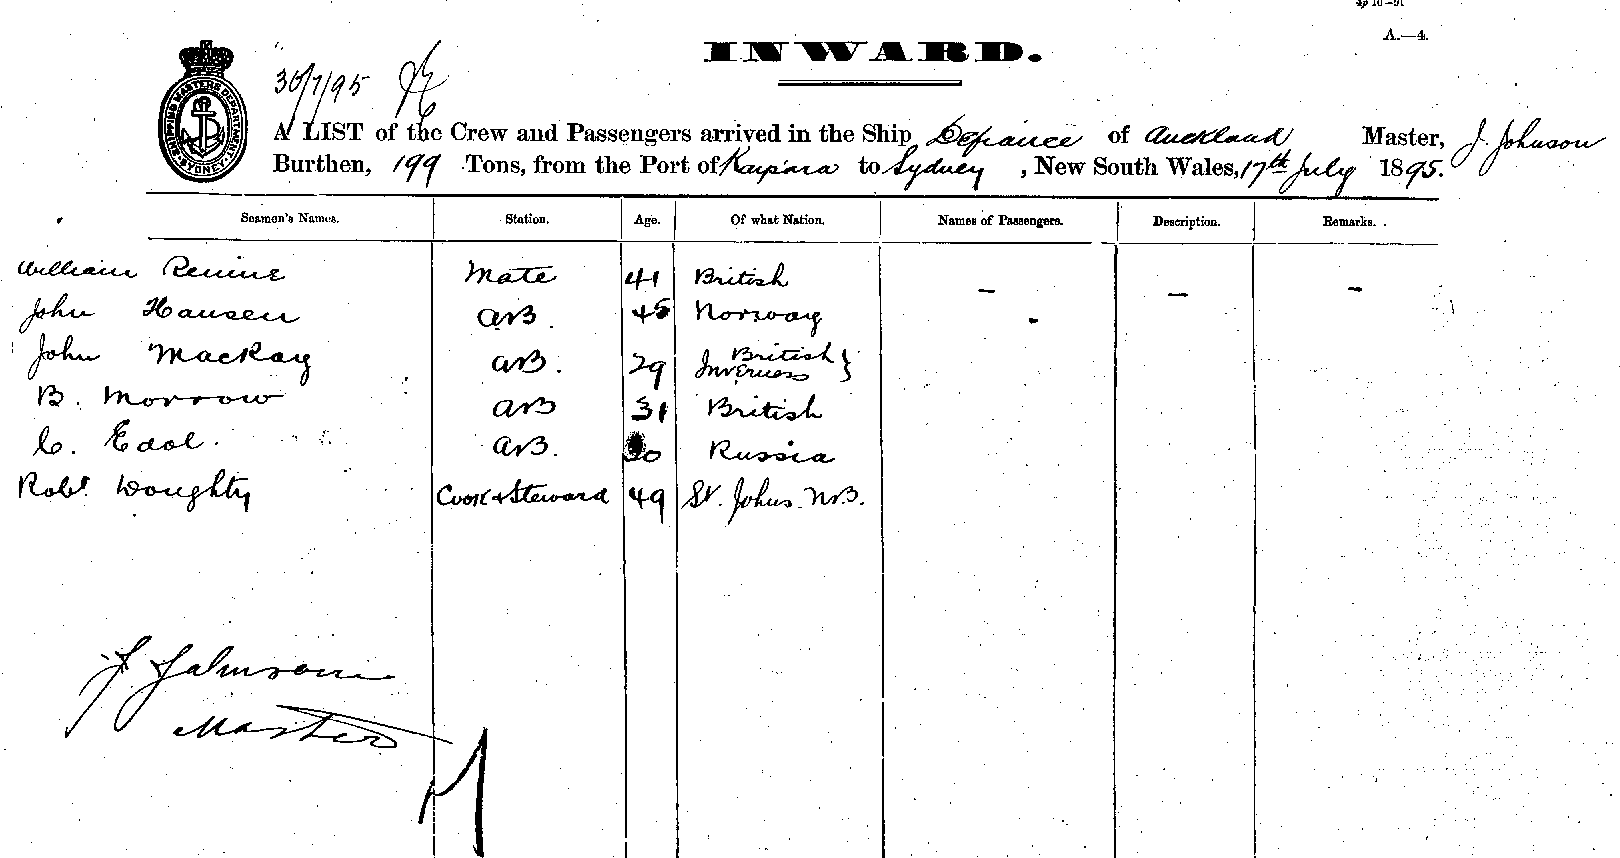 A.—4.
INWARD.
30/7/95
SHIPPING MASTERS DEPARTMENT SYDNEY
A LIST of the Crew and Passengers arrived in the Ship Defiance of Auckland Master, J. Johnson
Burthen, 199 Tons, from the Port of Kaipara to Sydney, New South Wales, 17th July 1895.
Seamen's Names. Station. Age. Of what Nation. Names of Passengers. Description. Remarks.
William Rennie Mate 41 British - - -
John Hansen AB. 45 Norway -
John MacKay AB. 29 British Inverness }
B. Morrow AB 31 British
C. Edol. AB. Russia
Robt. Doughty Cook & Steward 49 St. Johns. N.B.
J Johnson
Master